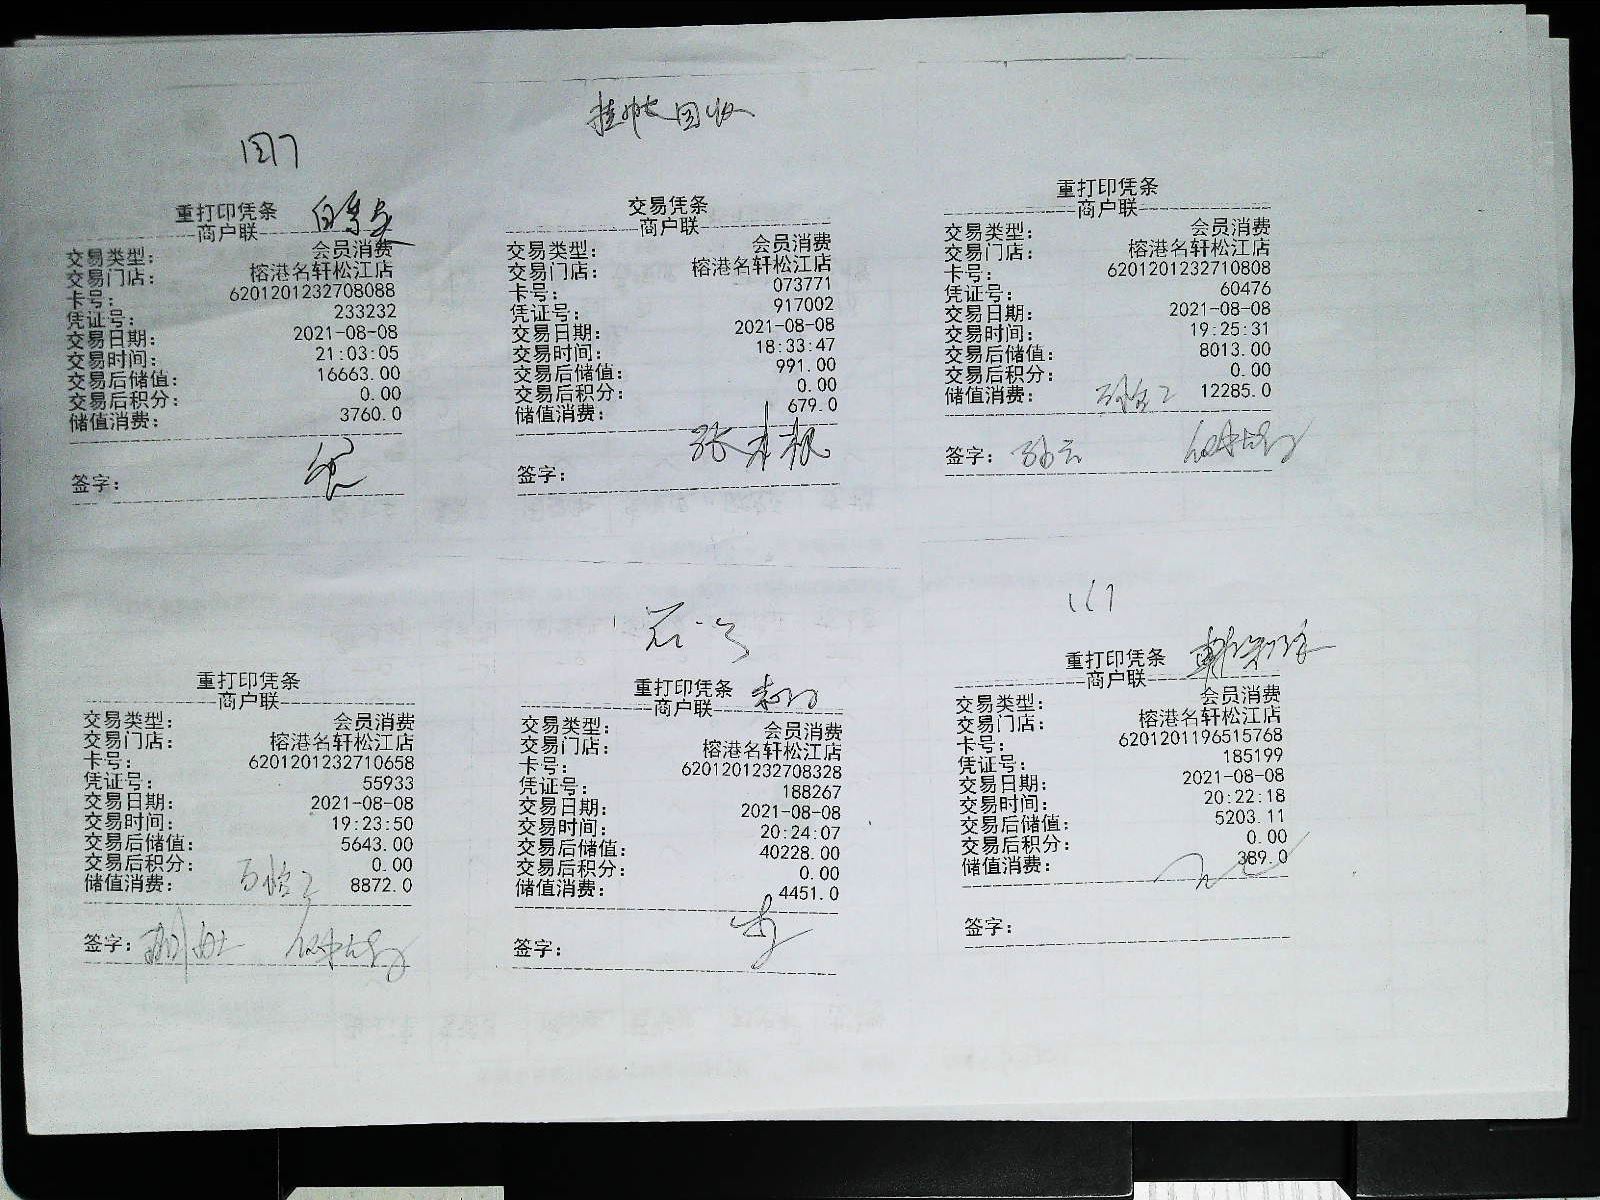 挂帐回收
重打印凭条
商户联
交易类型： 会员消费
交易门店： 榕港名轩松江店
卡号： 6201201232708088
凭证号： 233232
交易日期： 2021-08-08
交易时间： 21:03:05
交易后储值： 16663.00
交易后积分： 0.00
储值消费： 3760.0
签字：
交易凭条
商户联
交易类型： 会员消费
交易门店： 榕港名轩松江店
卡号： 073771
凭证号： 917002
交易日期： 2021-08-08
交易时间： 18:33:47
交易后储值： 991.00
交易后积分： 0.00
储值消费： 679.0
签字：
重打印凭条
商户联
交易类型： 会员消费
交易门店： 榕港名轩松江店
卡号： 6201201232710808
凭证号： 60476
交易日期： 2021-08-08
交易时间： 19:25:31
交易后储值： 8013.00
交易后积分： 0.00
储值消费： 12285.0
签字：
重打印凭条
商户联
交易类型： 会员消费
交易门店： 榕港名轩松江店
卡号： 6201201232710658
凭证号： 55933
交易日期： 2021-08-08
交易时间： 19:23:50
交易后储值： 5643.00
交易后积分： 0.00
储值消费： 8872.0
签字：
重打印凭条
商户联
交易类型： 会员消费
交易门店： 榕港名轩松江店
卡号： 6201201232708328
凭证号： 188267
交易日期： 2021-08-08
交易时间： 20:24:07
交易后储值： 40228.00
交易后积分： 0.00
储值消费： 4451.0
签字：
重打印凭条
商户联
交易类型： 会员消费
交易门店： 榕港名轩松江店
卡号： 6201201196515768
凭证号： 185199
交易日期： 2021-08-08
交易时间： 20:22:18
交易后储值： 5203.11
交易后积分： 0.00
储值消费： 389.0
签字：